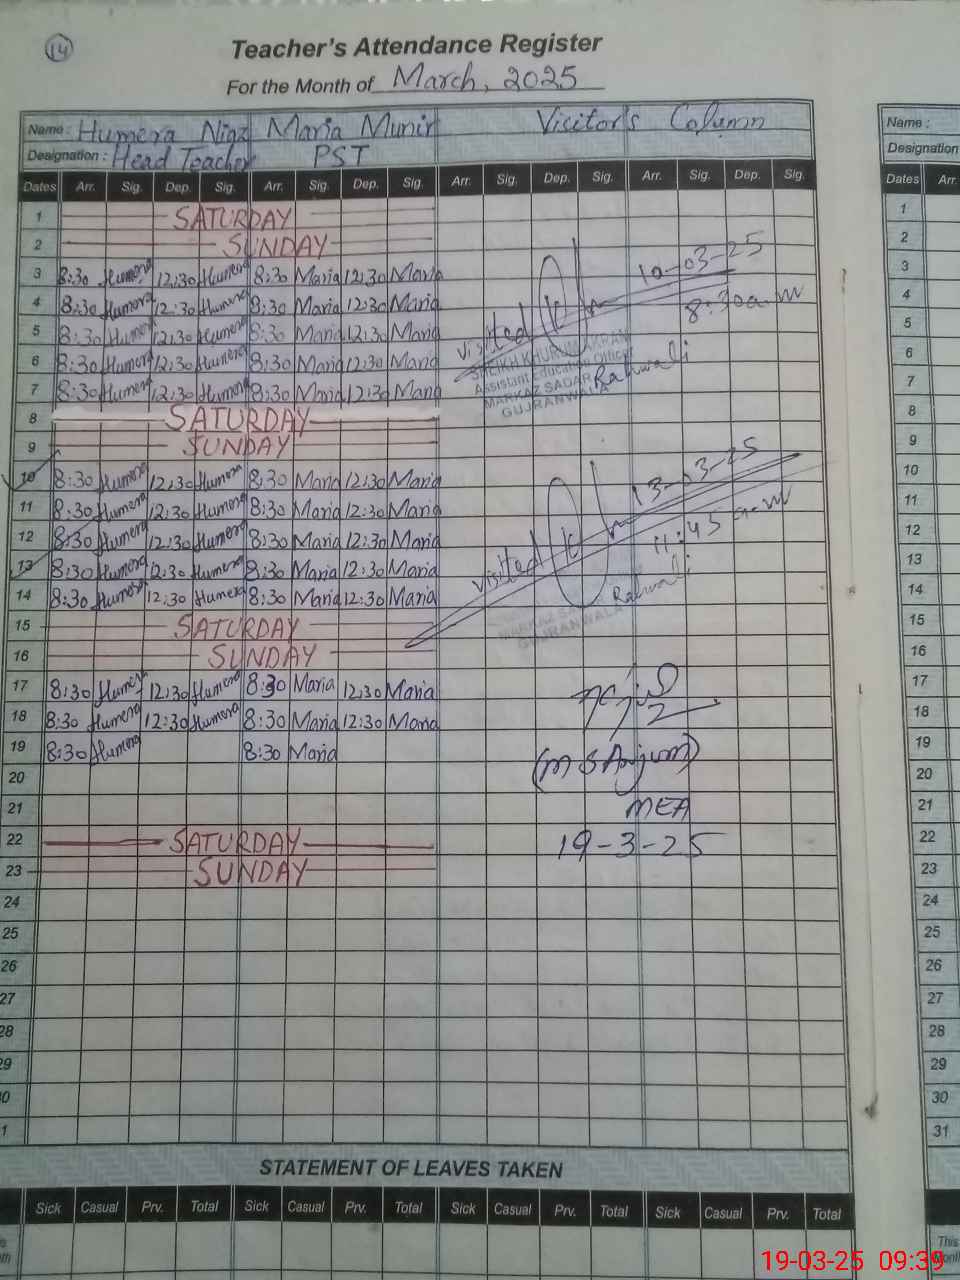 14
Teacher's Attendance Register
For the Month of March, 2025
Name : Humera Niaz Maria Munir Visitor's Column
Designation : Head Teacher PST
Dates Arr. Sig. Dep. Sig. Arr. Sig. Dep. Sig. Arr. Sig. Dep. Sig. Arr. Sig. Dep. Sig.
1 SATURDAY
2 SUNDAY
3 8:30 Humera 12:30 Humera 8:30 Maria 12:30 Maria
4 8:30 Humera 12:30 Humera 8:30 Maria 12:30 Maria
5 8:30 Humera 12:30 Humera 8:30 Maria 12:30 Maria
6 8:30 Humera 12:30 Humera 8:30 Maria 12:30 Maria
7 8:30 Humera 12:30 Humera 8:30 Maria 12:30 Maria
8 SATURDAY
9 SUNDAY
10 8:30 Humera 12:30 Humera 8:30 Maria 12:30 Maria
11 8:30 Humera 12:30 Humera 8:30 Maria 12:30 Maria
12 8:30 Humera 12:30 Humera 8:30 Maria 12:30 Maria
13 8:30 Humera 12:30 Humera 8:30 Maria 12:30 Maria
14 8:30 Humera 12:30 Humera 8:30 Maria 12:30 Maria
15 SATURDAY
16 SUNDAY
17 8:30 Humera 12:30 Humera 8:30 Maria 12:30 Maria
18 8:30 Humera 12:30 Humera 8:30 Maria 12:30 Maria
19 8:30 Humera 8:30 Maria
20
21
22 SATURDAY
23 SUNDAY
24
25
26
27
28
29
0
1
visited 10-03-25
8:30 a.m
SHEIKH KHURUM AKRAM
Assistant Education Officer
MARKAZ SADAR Rahwali
GUJRANWALA
visited 13-03-25
11:45 a.m
Rahwali
MARKAZ SA
GUJRANWALA
(M S Anjum)
MEA
19-3-25
STATEMENT OF LEAVES TAKEN
Sick Casual Prv. Total Sick Casual Prv. Total Sick Casual Prv. Total Sick Casual Prv. Total
Name :
Designation
Dates Arr.
1
2
3
4
5
6
7
8
9
10
11
12
13
14
15
16
17
18
19
20
21
22
23
24
25
26
27
28
29
30
31
This
Month
19-03-25 09:39